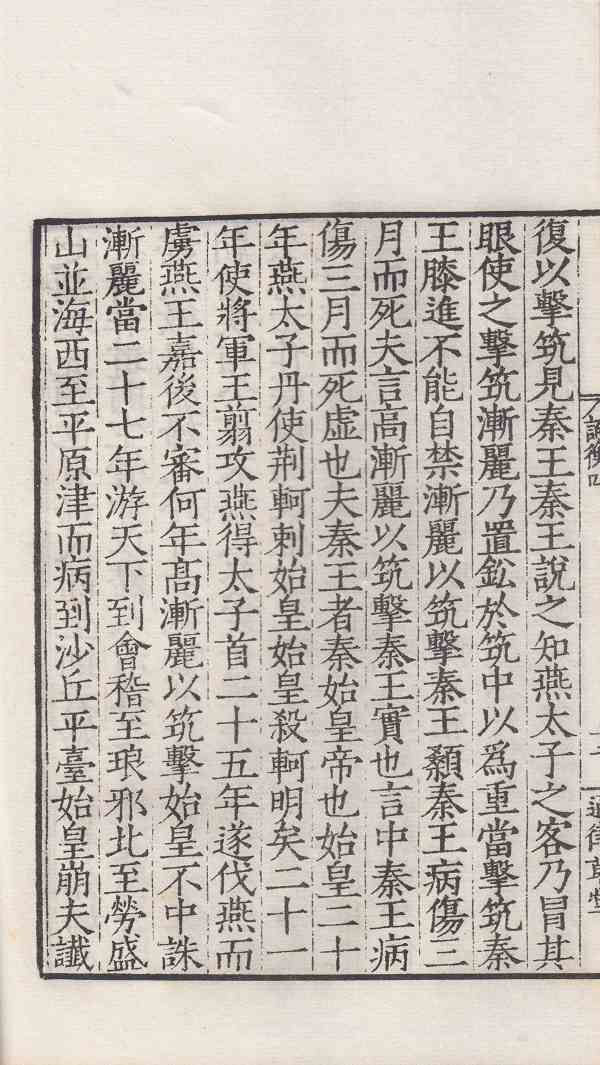 復以擊筑見秦王秦王說之知燕太子之客乃冒其
眼使之擊筑漸麗乃置鈆於筑中以爲重當擊筑秦
王膝進不能自禁漸麗以筑擊秦王顙秦王病傷三
月而死夫言高漸麗以筑擊秦王實也言中秦王病
傷三月而死虛也夫秦王者秦始皇帝也始皇二十
年燕太子丹使荆軻刺始皇始皇殺軻明矣二十一
年使將軍王翦攻燕得太子首二十五年遂伐燕而
虜燕王嘉後不審何年髙漸麗以筑擊始皇不中誅
漸麗當二十七年游天下到會稽至琅邪北至勞盛
山並海西至平原津而病到沙丘平臺始皇崩夫讖